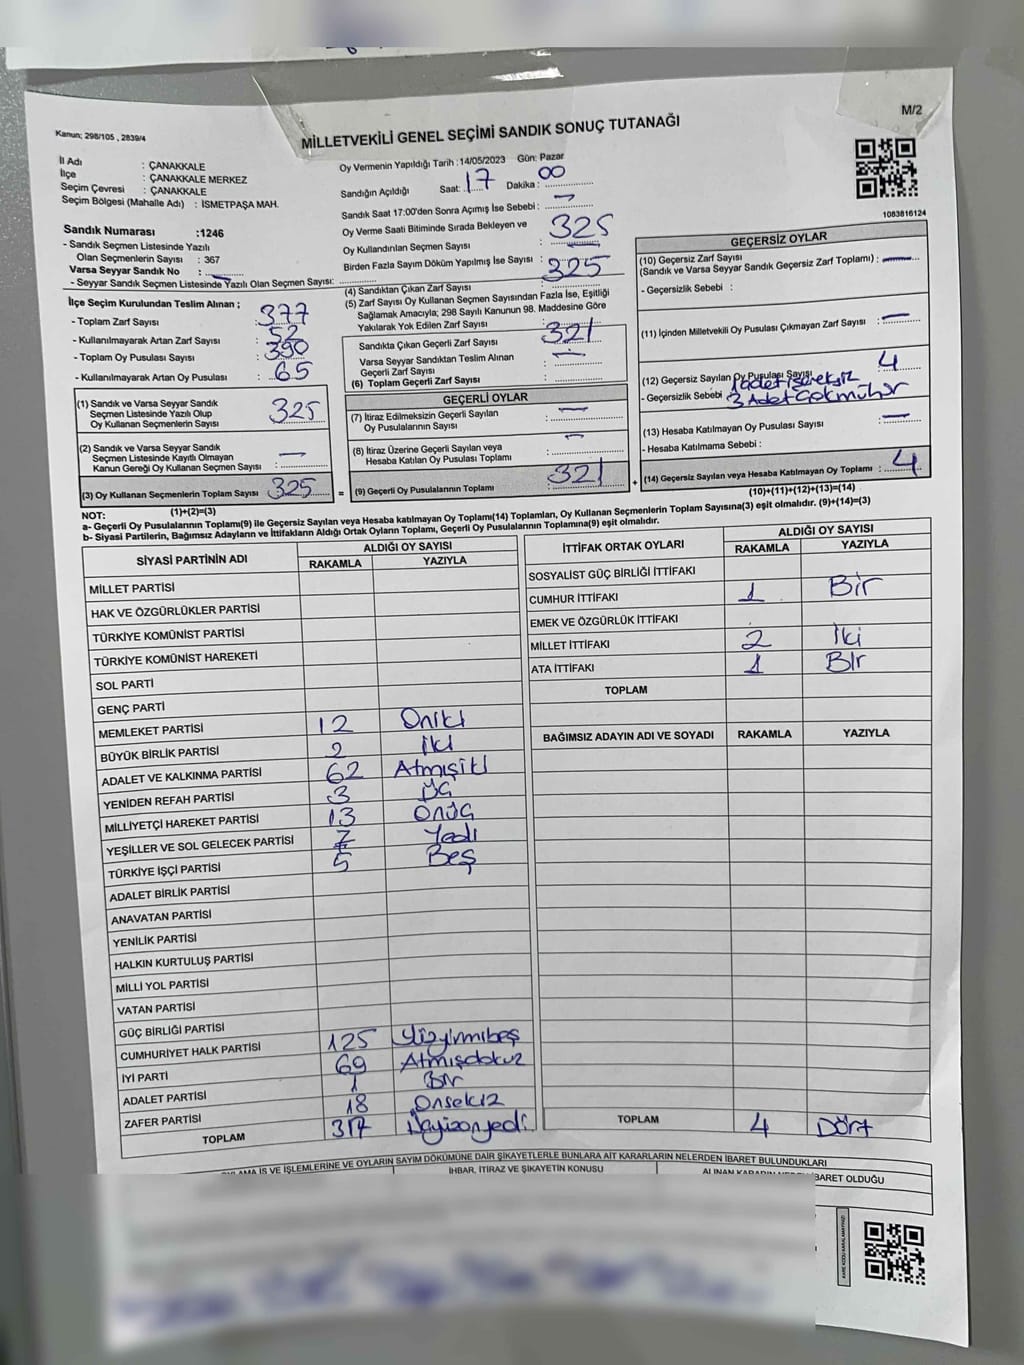 M/2
Kanun; 298/105 , 2839/4
MİLLETVEKİLİ GENEL SEÇİMİ SANDIK SONUÇ TUTANAĞI
İl Adı : ÇANAKKALE
İlçe : ÇANAKKALE MERKEZ
Seçim Çevresi : ÇANAKKALE
Seçim Bölgesi (Mahalle Adı) : İSMETPAŞA MAH.
Oy Vermenin Yapıldığı Tarih :14/05/2023 Gün: Pazar
Sandığın Açıldığı Saat: 17 Dakika : 00
Sandık Saat 17:00'den Sonra Açımış İse Sebebi : —
Oy Verme Saati Bitiminde Sırada Bekleyen ve
Oy Kullandırılan Seçmen Sayısı : 325
Birden Fazla Sayım Döküm Yapılmış İse Sayısı : —
1083816124
Sandık Numarası :1246
- Sandık Seçmen Listesinde Yazılı
Olan Seçmenlerin Sayısı : 367
Varsa Seyyar Sandık No : —
- Seyyar Sandık Seçmen Listesinde Yazılı Olan Seçmen Sayısı:
İlçe Seçim Kurulundan Teslim Alınan ;
- Toplam Zarf Sayısı : 377
- Kullanılmayarak Artan Zarf Sayısı : 52
- Toplam Oy Pusulası Sayısı : 390
- Kullanılmayarak Artan Oy Pusulası : 65
(1) Sandık ve Varsa Seyyar Sandık
Seçmen Listesinde Yazılı Olup
Oy Kullanan Seçmenlerin Sayısı : 325
(2) Sandık ve Varsa Seyyar Sandık
Seçmen Listesinde Kayıtlı Olmayan
Kanun Gereği Oy Kullanan Seçmen Sayısı : —
(3) Oy Kullanan Seçmenlerin Toplam Sayısı : 325
(1)+(2)=(3)
(4) Sandıktan Çıkan Zarf Sayısı : 325
(5) Zarf Sayısı Oy Kullanan Seçmen Sayısından Fazla İse, Eşitliği
Sağlamak Amacıyla; 298 Sayılı Kanunun 98. Maddesine Göre
Yakılarak Yok Edilen Zarf Sayısı : —
Sandıkta Çıkan Geçerli Zarf Sayısı : 321
Varsa Seyyar Sandıktan Teslim Alınan
Geçerli Zarf Sayısı : —
(6) Toplam Geçerli Zarf Sayısı :
GEÇERLİ OYLAR
(7) İtiraz Edilmeksizin Geçerli Sayılan
Oy Pusulalarının Sayısı : —
(8) İtiraz Üzerine Geçerli Sayılan veya
Hesaba Katılan Oy Pusulası Toplamı : —
= (9) Geçerli Oy Pusulalarının Toplamı : 321
GEÇERSİZ OYLAR
(10) Geçersiz Zarf Sayısı
(Sandık ve Varsa Seyyar Sandık Geçersiz Zarf Toplamı) : —
- Geçersizlik Sebebi :
(11) İçinden Milletvekili Oy Pusulası Çıkmayan Zarf Sayısı : —
(12) Geçersiz Sayılan Oy Pusulası Sayısı : 4
- Geçersizlik Sebebi 1 adet işeretsiz
3 Adet Çokmühür
(13) Hesaba Katılmayan Oy Pusulası Sayısı : —
- Hesaba Katılmama Sebebi :
+ (14) Geçersiz Sayılan veya Hesaba Katılmayan Oy Toplamı : 4
(10)+(11)+(12)+(13)=(14)
NOT:
a- Geçerli Oy Pusulalarının Toplamı(9) ile Geçersiz Sayılan veya Hesaba katılmayan Oy Toplamı(14) Toplamları, Oy Kullanan Seçmenlerin Toplam Sayısına(3) eşit olmalıdır. (9)+(14)=(3)
b- Siyasi Partilerin, Bağımsız Adayların ve İttifakların Aldığı Ortak Oyların Toplamı, Geçerli Oy Pusulalarının Toplamına(9) eşit olmalıdır.
SİYASİ PARTİNİN ADI ALDIĞI OY SAYISI
RAKAMLA YAZIYLA
MİLLET PARTİSİ
HAK VE ÖZGÜRLÜKLER PARTİSİ
TÜRKİYE KOMÜNİST PARTİSİ
TÜRKİYE KOMÜNİST HAREKETİ
SOL PARTİ
GENÇ PARTİ
MEMLEKET PARTİSİ 12 Oniki
BÜYÜK BİRLİK PARTİSİ 2 iki
ADALET VE KALKINMA PARTİSİ 62 Atmışiki
YENİDEN REFAH PARTİSİ 3 Üç
MİLLİYETÇİ HAREKET PARTİSİ 13 Onüç
YEŞİLLER VE SOL GELECEK PARTİSİ 7 Yedi
TÜRKİYE İŞÇİ PARTİSİ 5 Beş
ADALET BİRLİK PARTİSİ
ANAVATAN PARTİSİ
YENİLİK PARTİSİ
HALKIN KURTULUŞ PARTİSİ
MİLLİ YOL PARTİSİ
VATAN PARTİSİ
GÜÇ BİRLİĞİ PARTİSİ
CUMHURİYET HALK PARTİSİ 125 Yüzyirmibeş
İYİ PARTİ 69 Atmışdokuz
ADALET PARTİSİ 1 Bir
ZAFER PARTİSİ 18 Onsekiz
TOPLAM 317 Üçyüzonyedi
İTTİFAK ORTAK OYLARI ALDIĞI OY SAYISI
RAKAMLA YAZIYLA
SOSYALİST GÜÇ BİRLİĞİ İTTİFAKI
CUMHUR İTTİFAKI 1 Bir
EMEK VE ÖZGÜRLÜK İTTİFAKI
MİLLET İTTİFAKI 2 İki
ATA İTTİFAKI 1 Bir
TOPLAM
BAĞIMSIZ ADAYIN ADI VE SOYADI RAKAMLA YAZIYLA
TOPLAM 4 Dört
İŞ VE İŞLEMLERİNE VE OYLARIN SAYIM DÖKÜMÜNE DAİR ŞİKAYETLERLE BUNLARA AİT KARARLARIN NELERDEN İBARET BULUNDUKLARI
İHBAR, İTİRAZ VE ŞİKAYETİN KONUSU
İBARET OLDUĞU